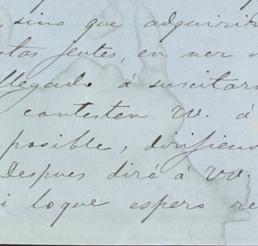 sino que adquirir
stas jentes, en ver
llegado á suscitar
contesten VV. á
posible, dirijien
Despues diré á VV.
i loque espero re